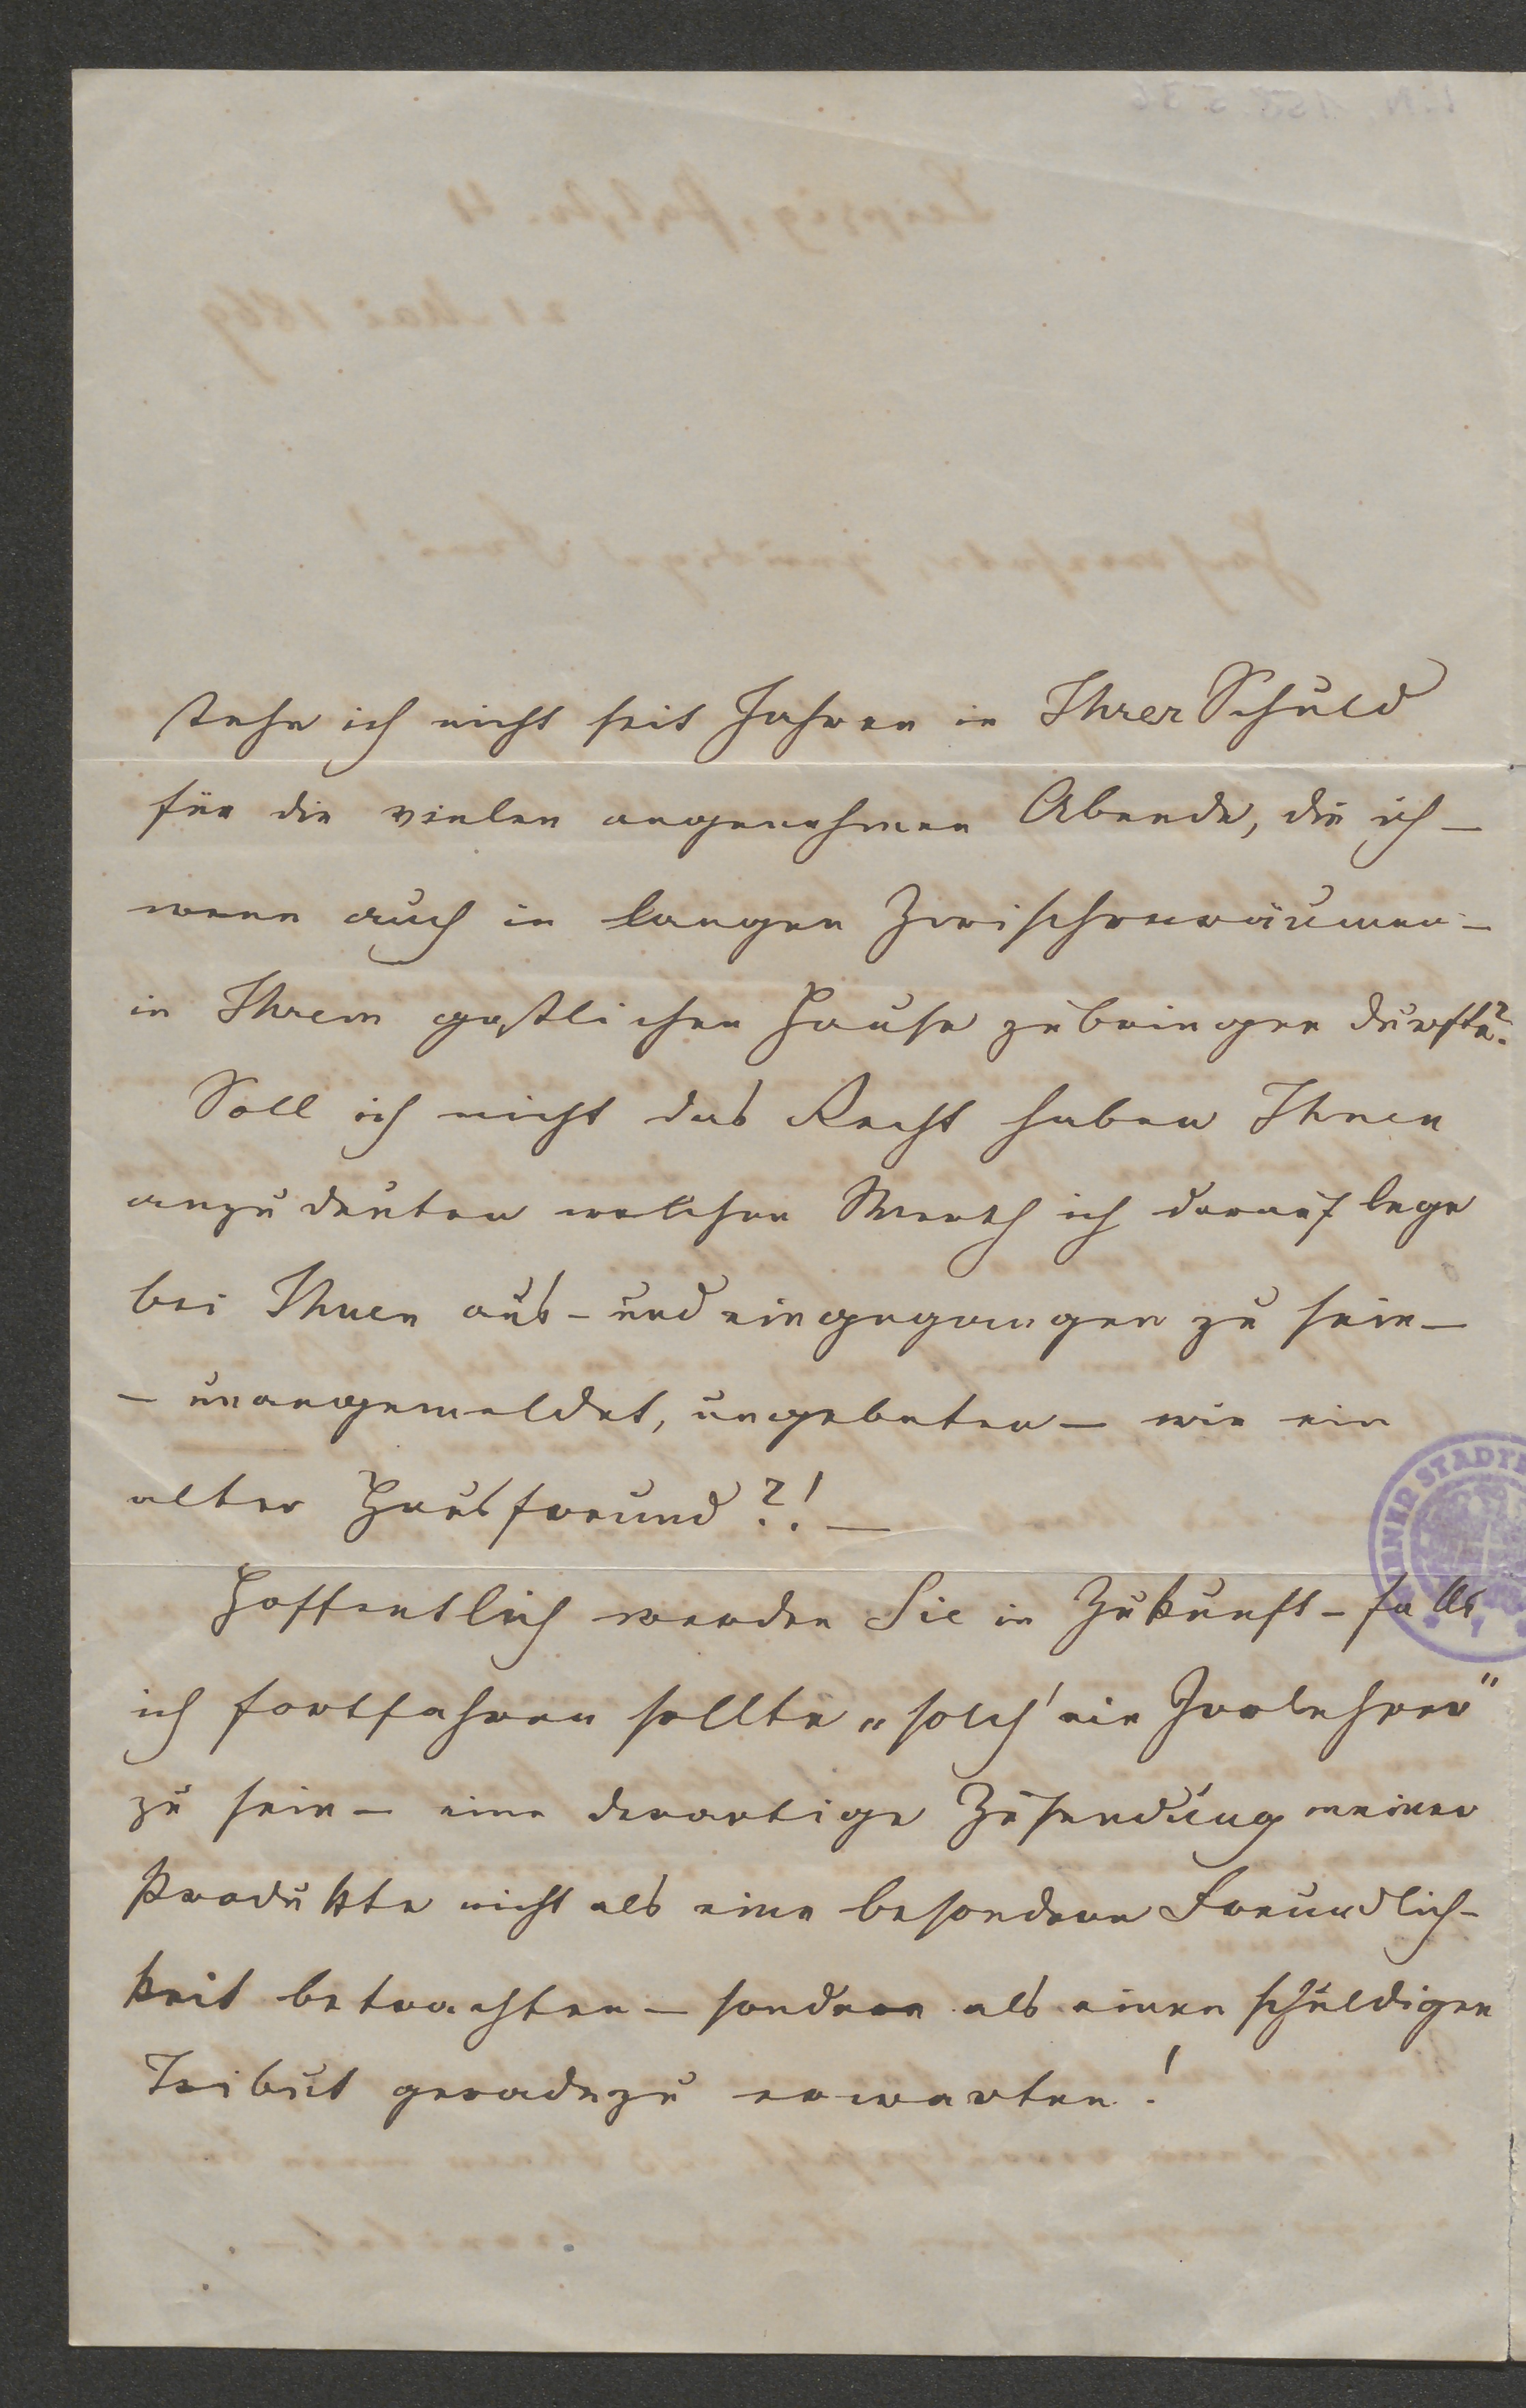 stehe ich nicht seit Jahren in Ihrer Schuld
für die vielen angenehmen Abende, die ich –
wenn auch in langen Zwischenräumen –
in Ihrem gastlichen Hause zubringen durfte?
Soll ich nicht das Recht haben Ihnen
anzudeuten welchen Werth ich darauf lege
bei Ihnen aus- und eingegangen zu sein –
– unangemeldet, ungebeten – wie ein
alter Hausfreund?! –
Hoffentlich werden Sie in Zukunft – falls
ich fortfahren sollte „solch' ein Irrlehrer"
zu sein – eine derartige Zusendung meiner
Produkte nicht als eine besondere Freundlich-
keit betrachten – sondern als einen schuldigen
Tribut geradezu erwarten!